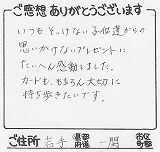 ご感想ありがとうございます
いつもそっけない子供達からの
思いがけないプレゼントに
たいへん感動しました。
カードも、もちろん大切に
持ち歩きたいです。
ご住所 岩手 都道府県 一関 市区町村